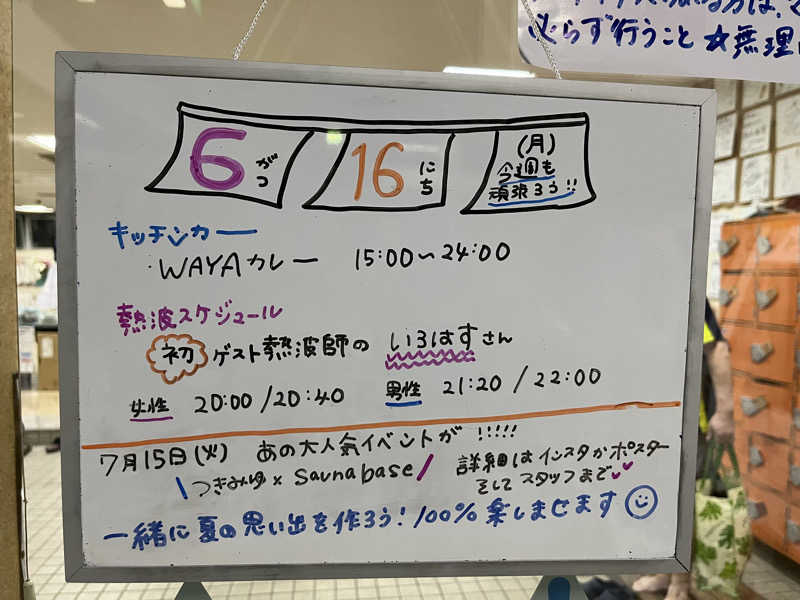 必らず行うこと ☆無理
6がつ 16にち (月)
今週も
頑張ろう!!
キッチンカー
・WAYAカレー 15:00〜24:00
熱波スケジュール
初 ゲスト熱波師の いろはすさん
女性 20:00/20:40 男性 21:20/22:00
7月15日(火) あの大人気イベントが!!!!!
\つきみゆ×Saunabase/ 詳細はインスタかポスター
そしてスタッフまで♥♥
一緒に夏の思い出を作ろう!100%楽しませます☺